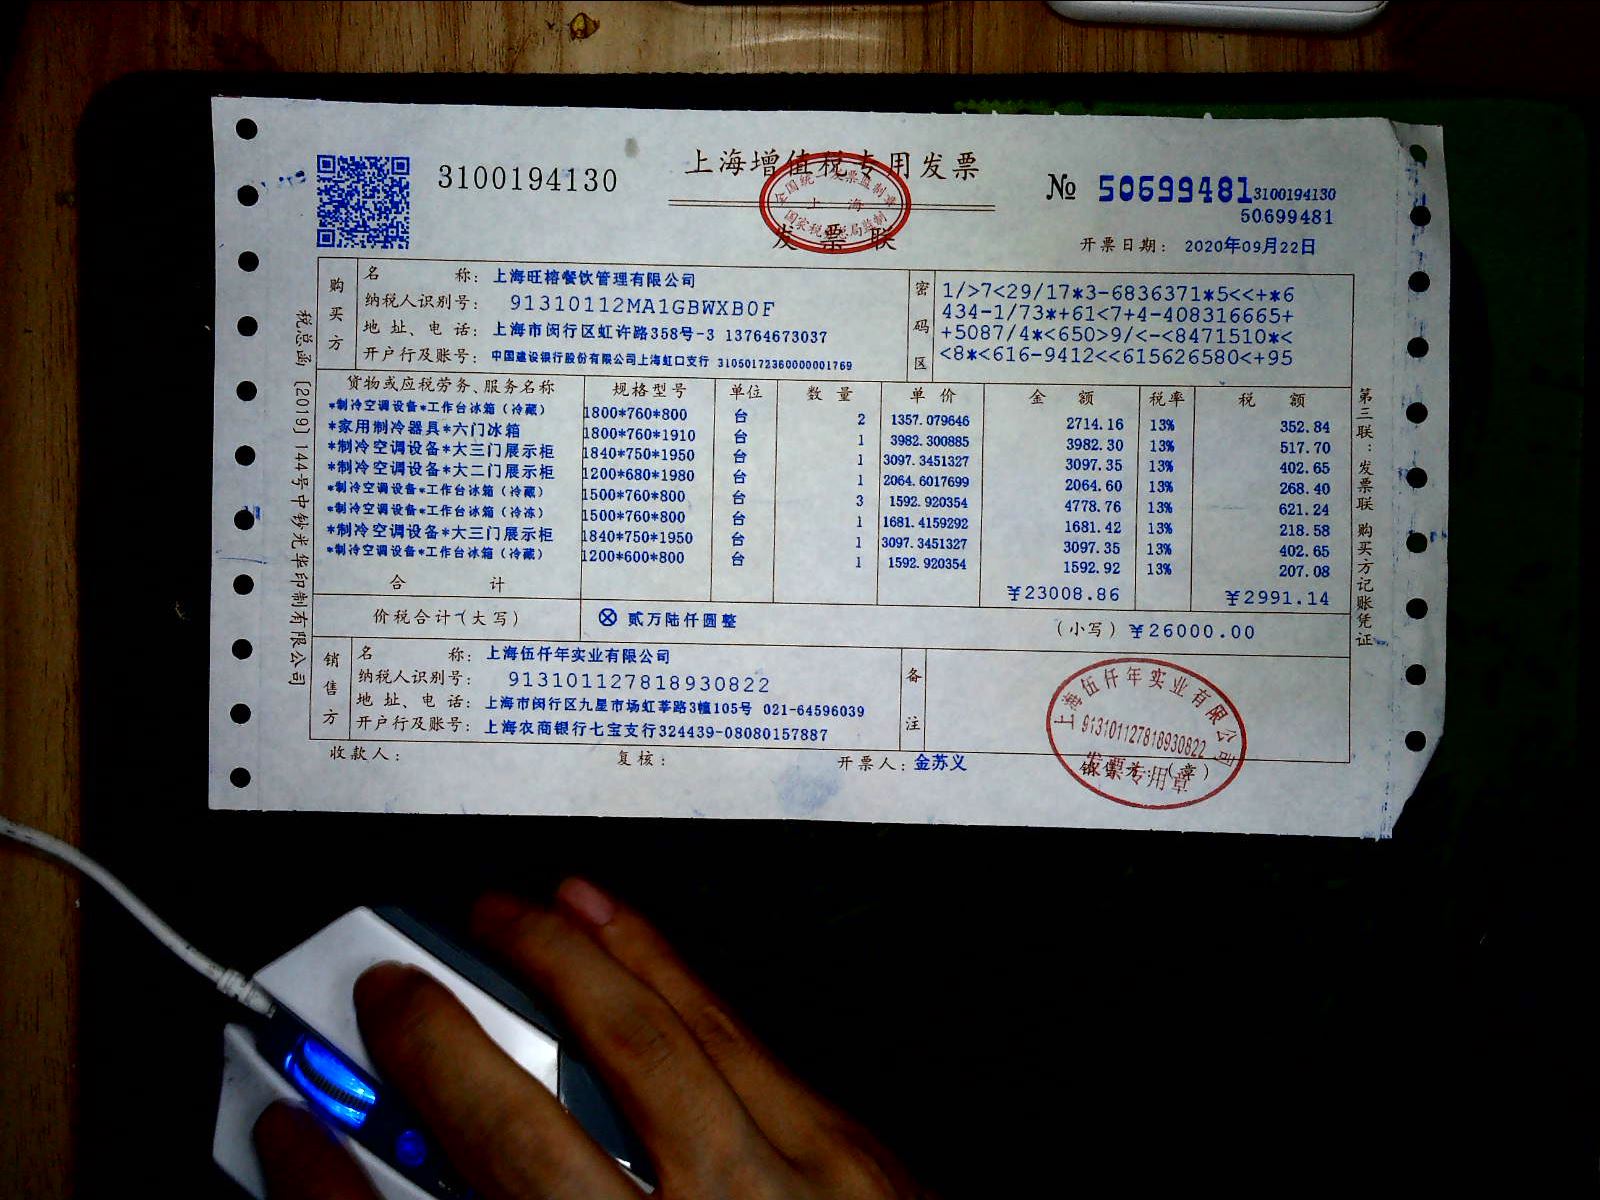 上海增值税专用发票
发票联
3100194130
№ 50699481
3100194130
50699481
开票日期： 2020年09月22日
税总函〔2019〕144号中钞光华印制有限公司
第三联：发票联 购买方记账凭证
购买方
名 称： 上海旺榕餐饮管理有限公司
纳税人识别号： 91310112MA1GBWXB0F
地 址、电 话： 上海市闵行区虹许路358号-3 13764673037
开户行及账号： 中国建设银行股份有限公司上海虹口支行 31050172360000001769
密码区
1/>7<29/17*3-6836371*5<<+*6
434-1/73*+61<7+4-408316665+
+5087/4*<650>9/<-<8471510*<
<8*<616-9412<<615626580<+95
货物或应税劳务、服务名称 规格型号 单位 数 量 单 价 金 额 税率 税 额
*制冷空调设备*工作台冰箱（冷藏） 1800*760*800 台 2 1357.079646 2714.16 13% 352.84
*家用制冷器具*六门冰箱 1800*760*1910 台 1 3982.300885 3982.30 13% 517.70
*制冷空调设备*大三门展示柜 1840*750*1950 台 1 3097.3451327 3097.35 13% 402.65
*制冷空调设备*大二门展示柜 1200*680*1980 台 1 2064.6017699 2064.60 13% 268.40
*制冷空调设备*工作台冰箱（冷藏） 1500*760*800 台 3 1592.920354 4778.76 13% 621.24
*制冷空调设备*工作台冰箱（冷冻） 1500*760*800 台 1 1681.4159292 1681.42 13% 218.58
*制冷空调设备*大三门展示柜 1840*750*1950 台 1 3097.3451327 3097.35 13% 402.65
*制冷空调设备*工作台冰箱（冷藏） 1200*600*800 台 1 1592.920354 1592.92 13% 207.08
合 计 ¥23008.86 ¥2991.14
价税合计（大写） ⊗ 贰万陆仟圆整 （小写）¥26000.00
销售方
名 称： 上海伍仟年实业有限公司
纳税人识别号： 913101127818930822
地 址、电 话： 上海市闵行区九星市场虹莘路3幢105号 021-64596039
开户行及账号： 上海农商银行七宝支行324439-08080157887
备注
上海伍仟年实业有限公司
913101127818930822
发票专用章
收款人： 复核： 开票人：金苏义 销售方：（章）
全国统一发票监制章
上海
国家税务总局监制